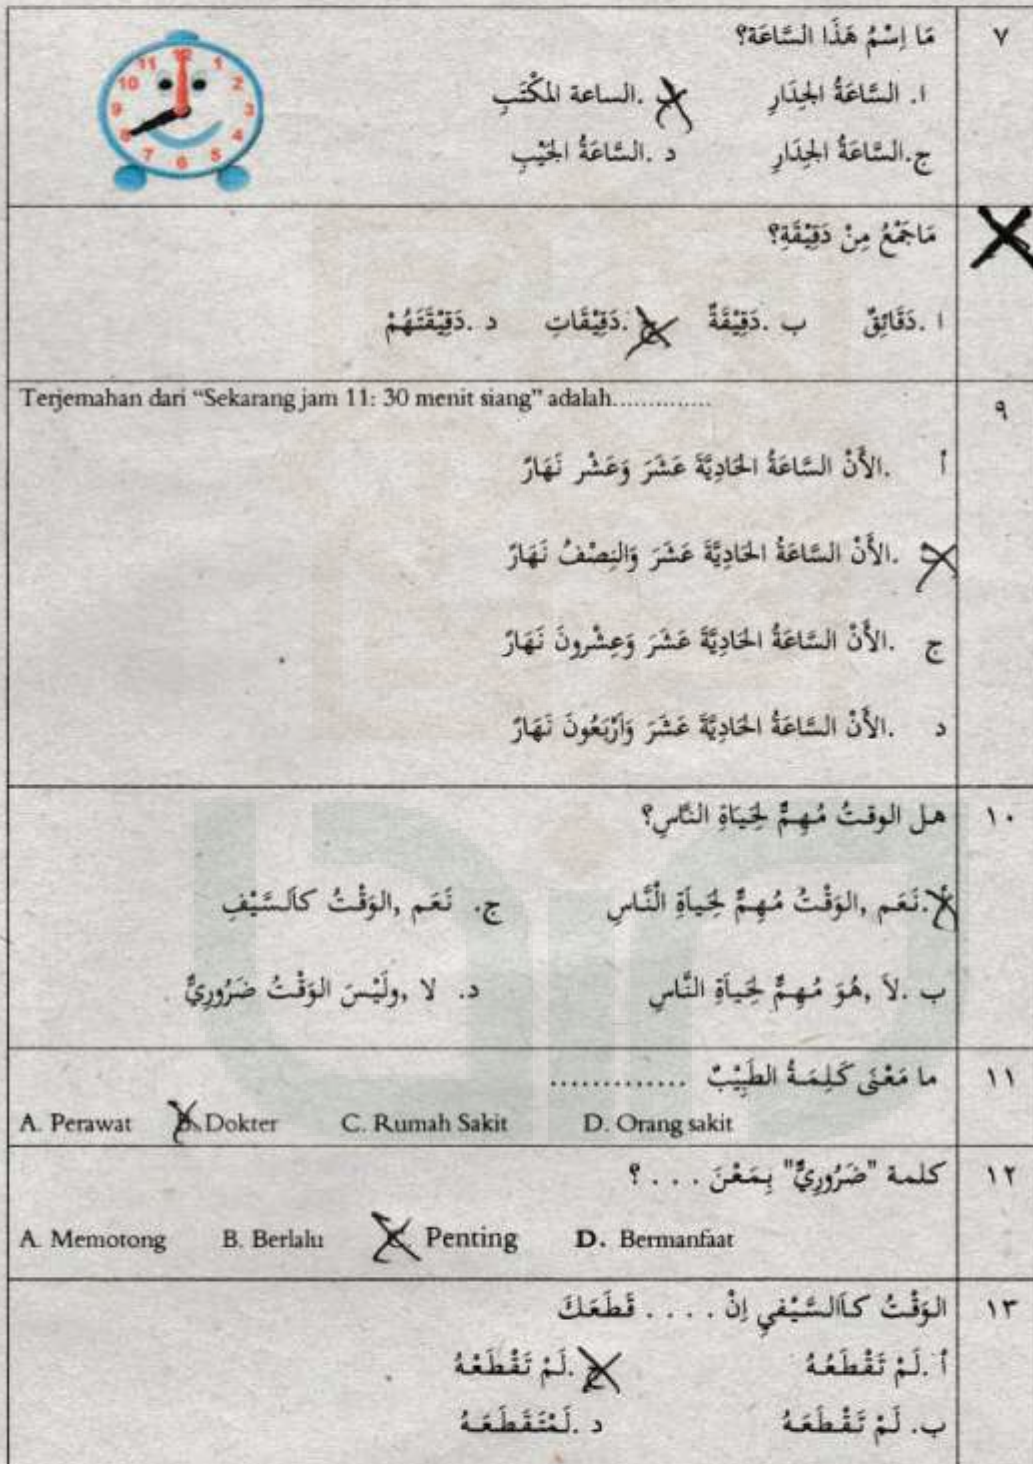 ٧ مَا اِسْمُ هَذَا السَّاعَة؟
ا. السَّاعَةُ الجِدَارِ ب .الساعة المكْتَبِ
ج.السَّاعَةُ الجِدَارِ د .السَّاعَةُ الجَيْبِ
11 12 1
10 2
9 3
8 4
7 6 5
مَاجَمْعُ مِنْ دَقِيْقَةِ؟
ا .دَقَائِقٌ ب .دَقِيْقَةٌ ج .دَقِيْقَاتِ د .دَقِيْقَتَهُمْ
٩ Terjemahan dari “Sekarang jam 11: 30 menit siang” adalah..............
أ .الأَنْ السَّاعَةُ الحَادِيَّةَ عَشَرَ وَعَشْر نَهَارٌ
ب .الأَنْ السَّاعَةُ الحَادِيَّةَ عَشَرَ وَالنِصْفُ نَهَارٌ
ج .الأَنْ السَّاعَةُ الحَادِيَّةَ عَشَرَ وَعِشْرونَ نَهَارٌ
د .الأَنْ السَّاعَةُ الحَادِيَّةَ عَشَرَ وَاَرْبَعُونَ نَهَارٌ
١٠ هل الوقتُ مُهِمٌّ لِحَيَاةِ النَّاسِ؟
أ.نَعَم ,الوَقْتُ مُهِمٌّ لِحَياَةِ الْنَّاسِ ج. نَعَم ,الوَقْتُ كاَلسَّيْفِ
ب .لاَ ,هُوَ مُهِمٌّ لِحَياَةِ النَّاسِ د. لا ,ولَيْسَ الوَقْتُ ضَرُورِيٌّ
١١ ما مَعْنَى كَلِمَةُ الطَبِيْبٌ .............
A. Perawat B. Dokter C. Rumah Sakit D. Orang sakit
١٢ كلمة "ضَرُورِيٌّ" بِمَعْنَ . . . ؟
A. Memotong B. Berlalu C. Penting D. Bermanfaat
١٣ الوَقْتُ كاَالسَّيْفيِ اِنْ . . . . قَطَعَكَ
أ .لَمْ تَقْطَعُهُ ج .لَمْ تَقْطَعْهُ
ب. لَمْ تَقْطَعَهُ د .لَمْتَقَطَعَهُ